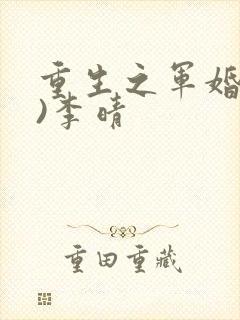 重生之军婚
)李晴
重田重藏